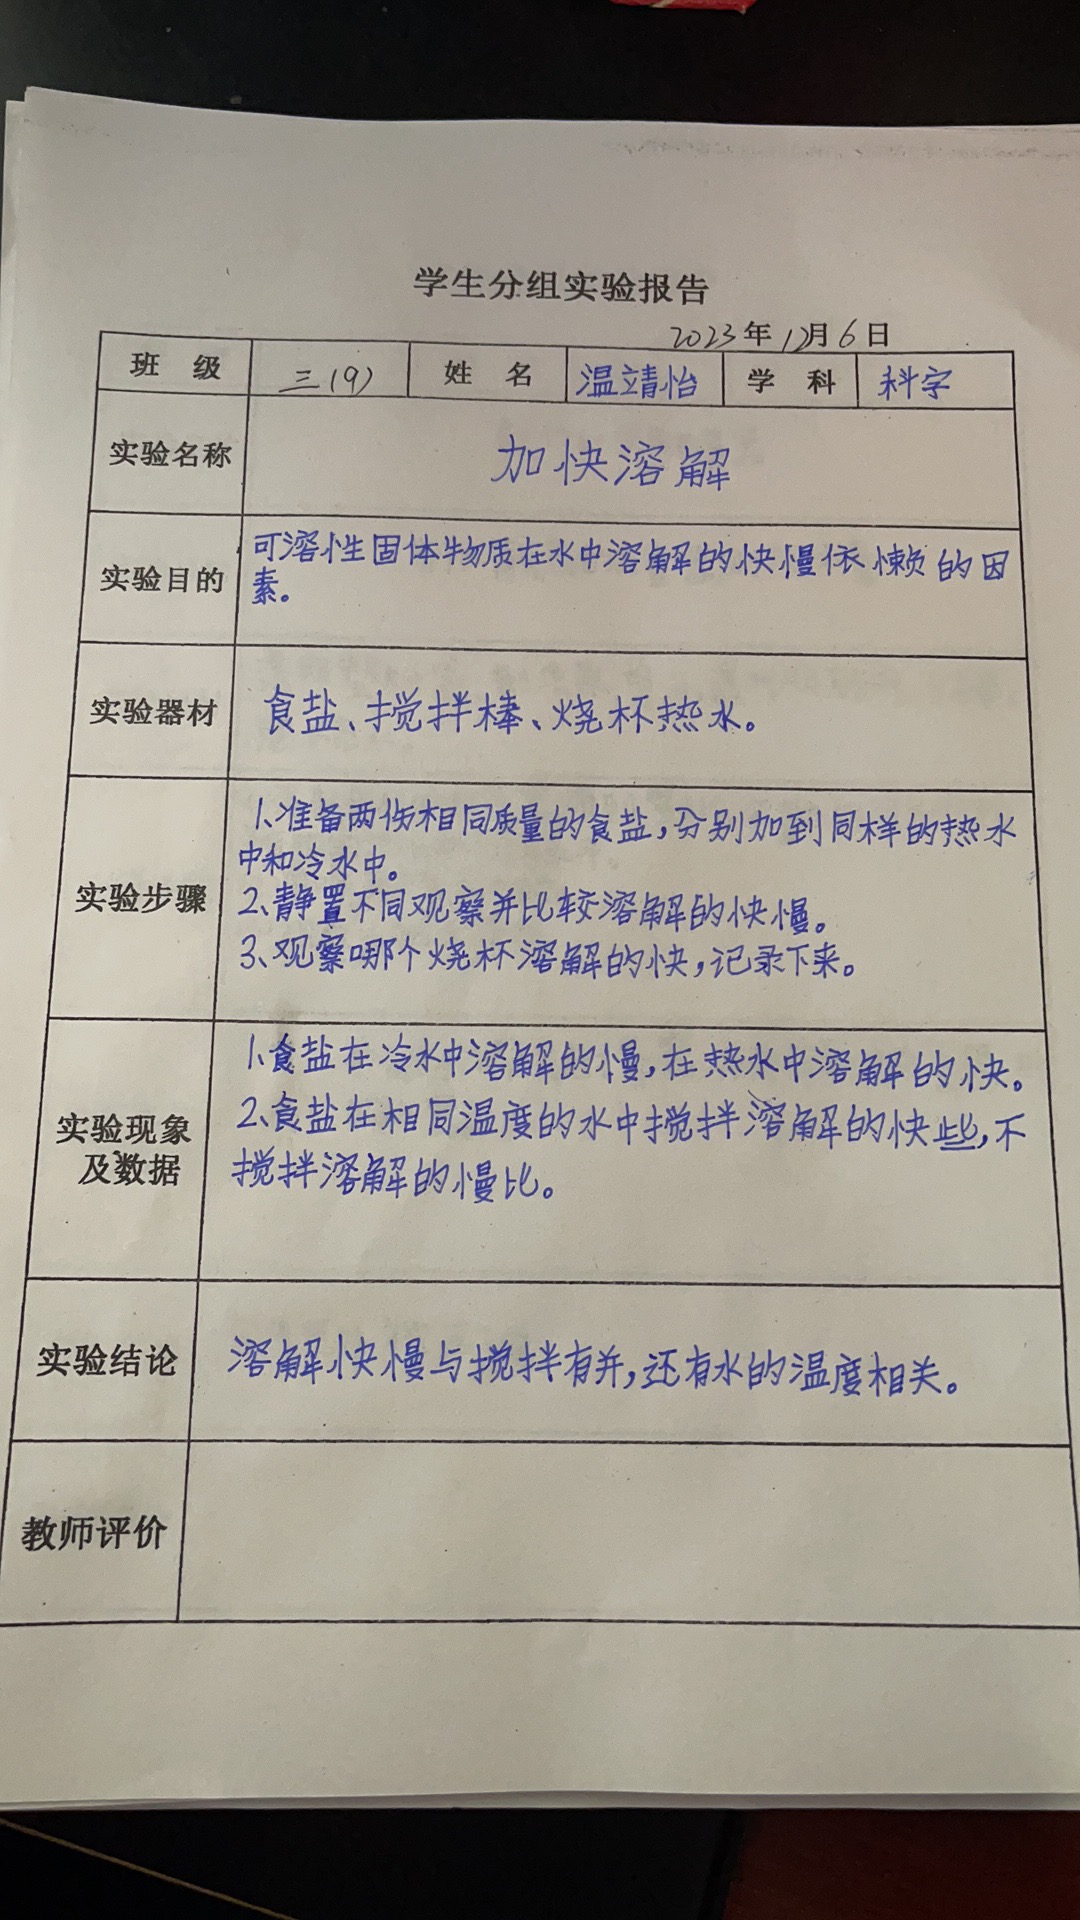 学生分组实验报告
2023年12月6日
班 级 三(9) 姓 名 温靖怡 学 科 科字
实验名称 加快溶解
实验目的 可溶性固体物质在水中溶解的快慢依懒的因
素。
实验器材 食盐、搅拌棒、烧杯热水。
实验步骤
1、准备两伤相同质量的食盐,分别加到同样的热水
中和冷水中。
2、静置不同观察并比较溶解的快慢。
3、观察哪个烧杯溶解的快,记录下来。
实验现象
及数据
1、食盐在冷水中溶解的慢,在热水中溶解的快。
2、食盐在相同温度的水中搅拌溶解的快些,不
搅拌溶解的慢比。
实验结论 溶解快慢与搅拌有并,还有水的温度相关。
教师评价